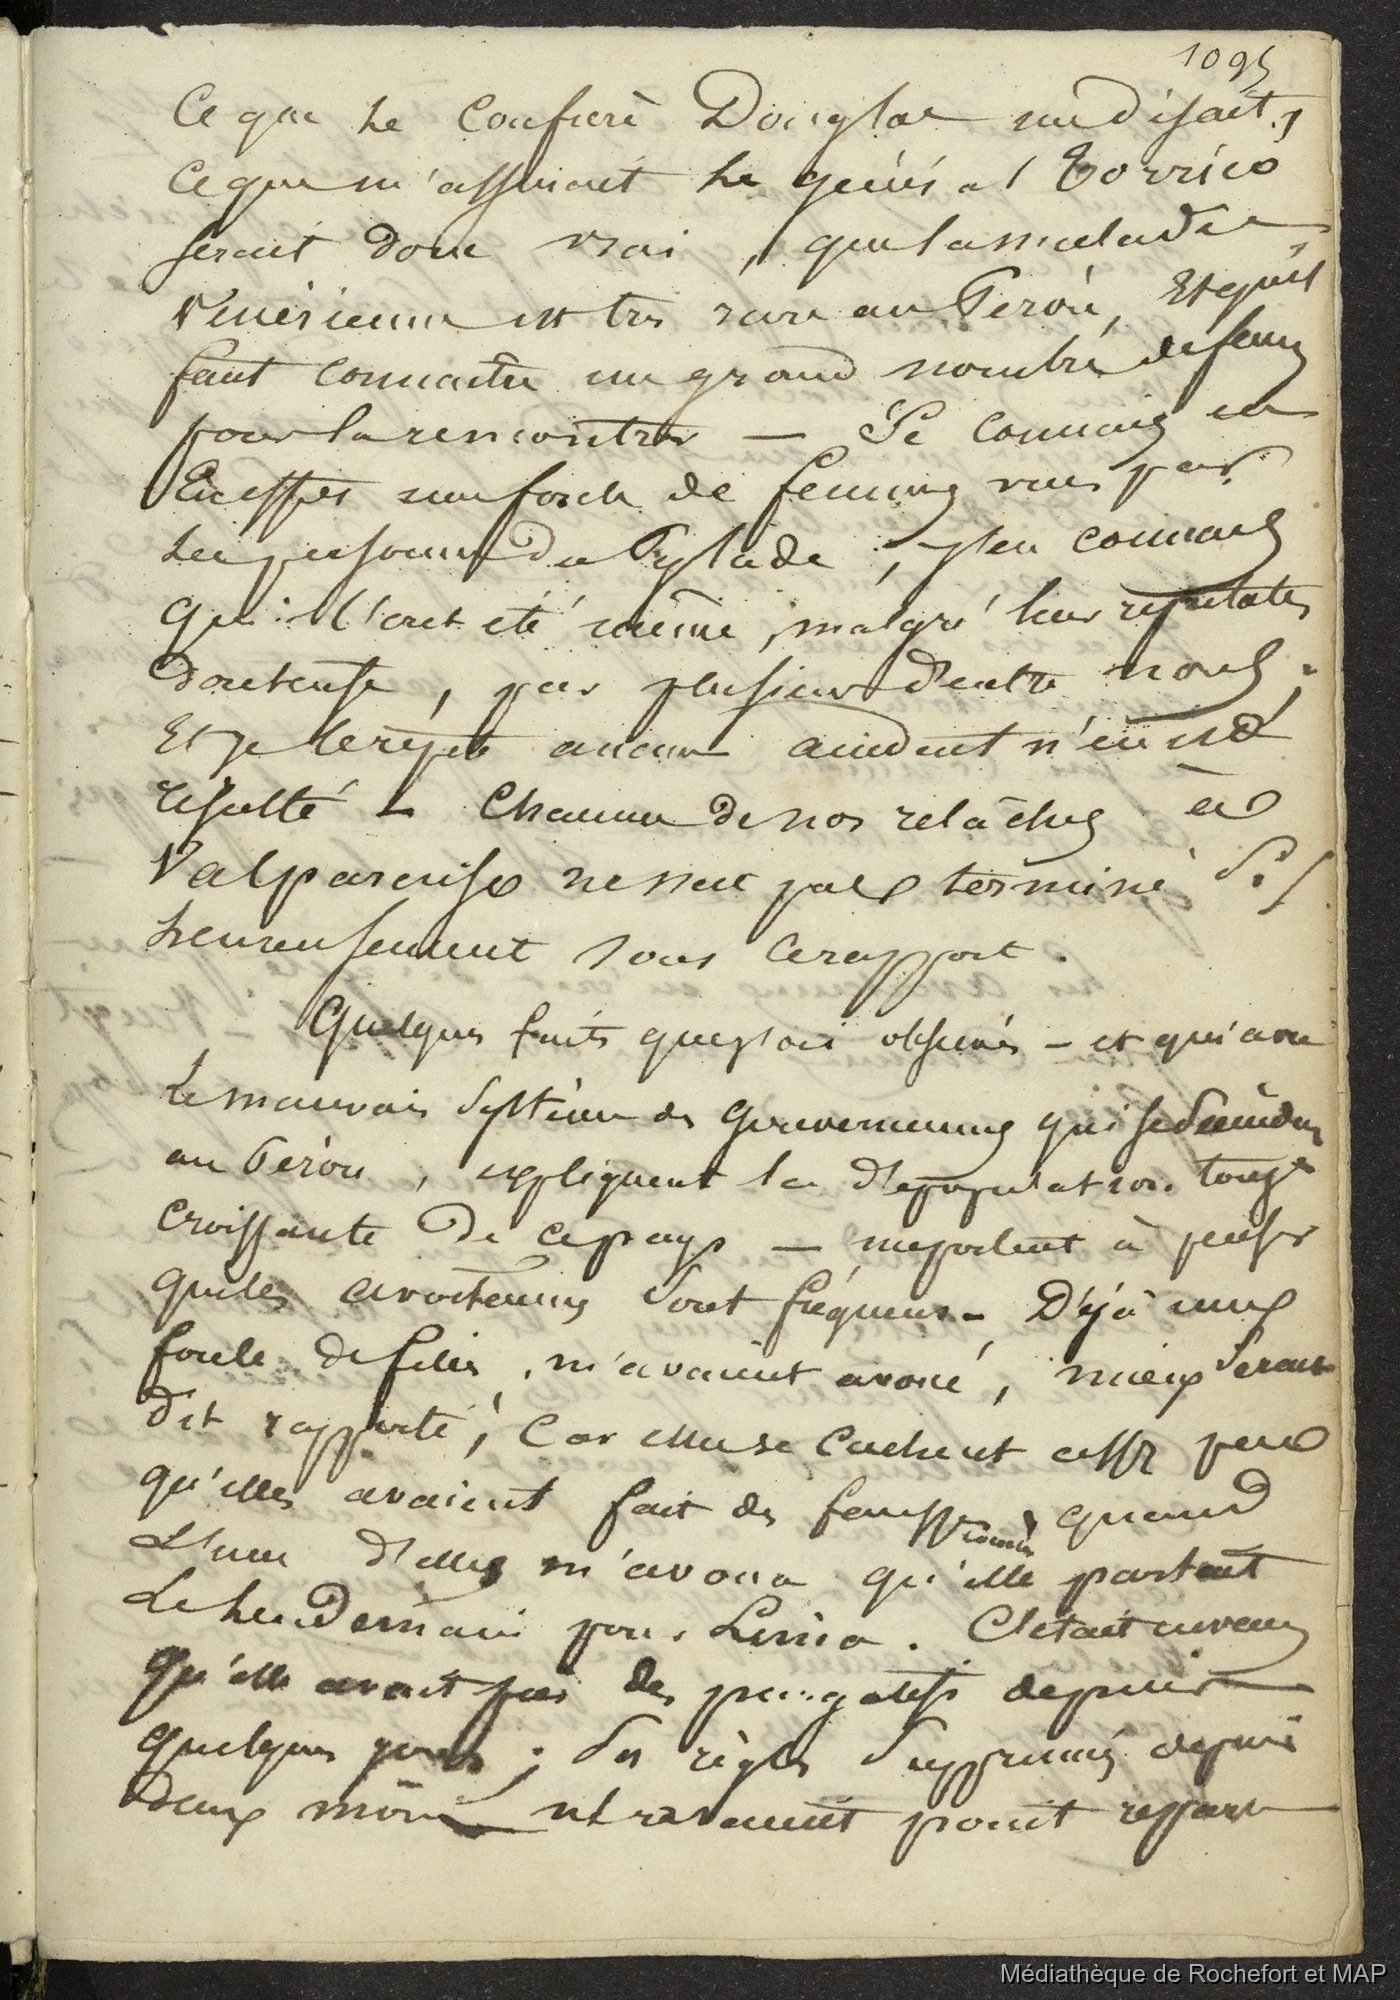 1095
Ce que le confrère Douglas me disait,
Ce que m'assurait le général Torrico
serait donc vrai, que la maladie
Vénérienne est très rare au Pérou, Et qu'il
faut connaître un grand nombre de femmes
pour la rencontrer — Je connais en
En effet une foule de femmes vues par
les personnes du Pylade, j'en connais
qui l'ont été même, malgré leur réputation
douteuse, par plusieurs d'entre nous.
Et je le répète aucun accident n'en est
résulté — Chacune de nos relâches à
Valparaiso ne s'est pas terminé si
heureusement sous ce rapport.
Quelques faits que j'ai observés — et qui avec
le mauvais système de Gouvernement qui se
au Pérou, expliquent la dépopulation toujrs
croissante de ce pays — me portent à penser
que les avortemens sont fréquens — Déjà une
foule de filles, m'avaient avoué, mieux serait
dit rapporté, Car elles se cachent assez peu
qu'elles avaient fait des fausses couches quand
L'une d'elles m'avoua qu'elle partait
Le lendemain pour Lima. C'était
qu'elle avait pris des purgatifs depuis
quelques jours; ses règles supprimées depuis
deux mois n'avaient point repparu
Médiathèque de Rochefort et MAP